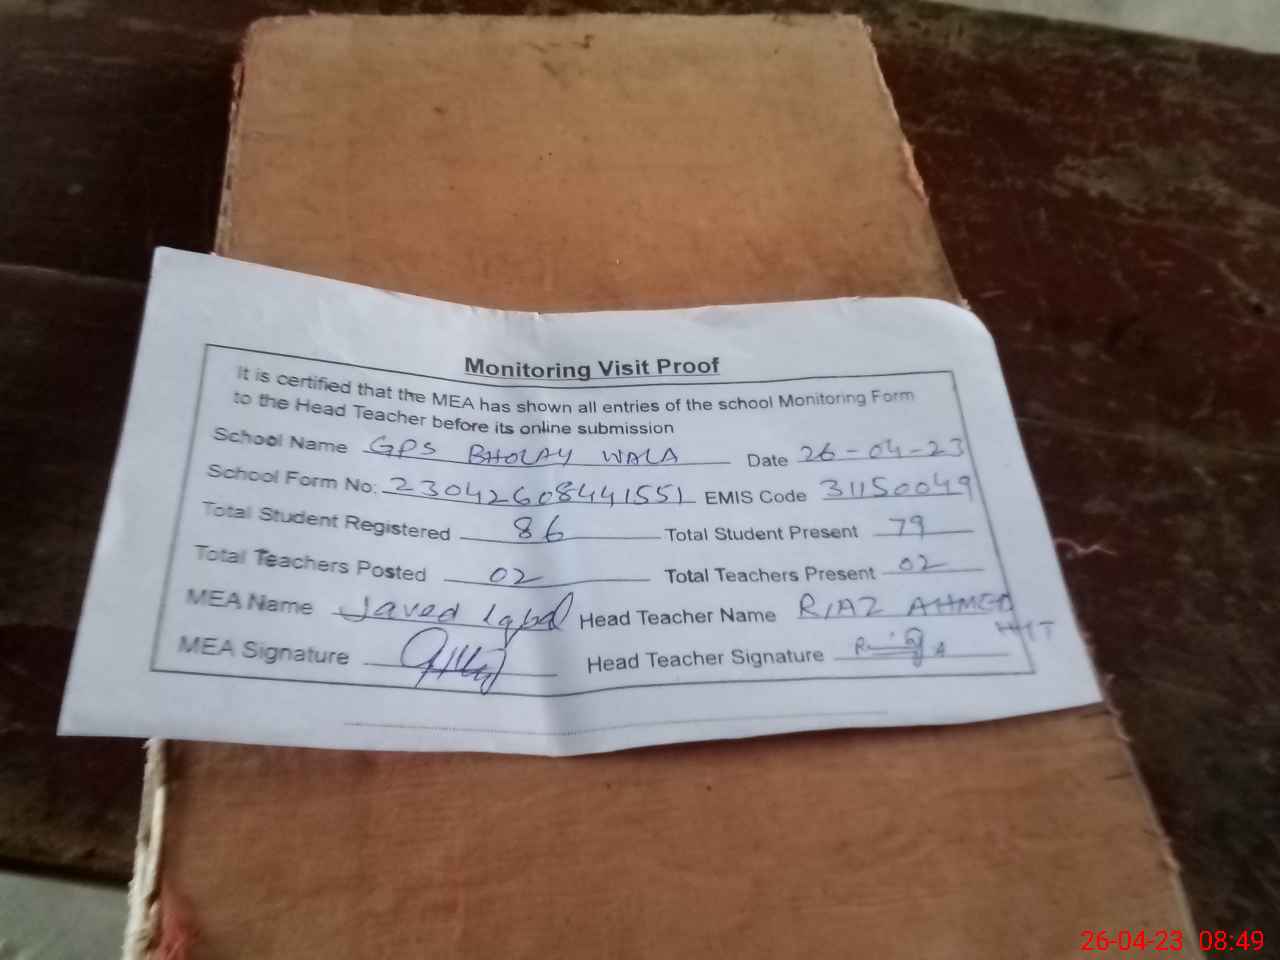 Monitoring Visit Proof
It is certified that the MEA has shown all entries of the school Monitoring Form
to the Head Teacher before its online submission
School Name GPS BHOLAY WALA Date 26-04-23
School Form No: 230426084441551 EMIS Code 31150049
Total Student Registered 86 Total Student Present 79
Total Teachers Posted 02 Total Teachers Present 02
MEA Name Javed Iqbal Head Teacher Name RIAZ AHMED
MEA Signature Head Teacher Signature
26-04-23 08:49